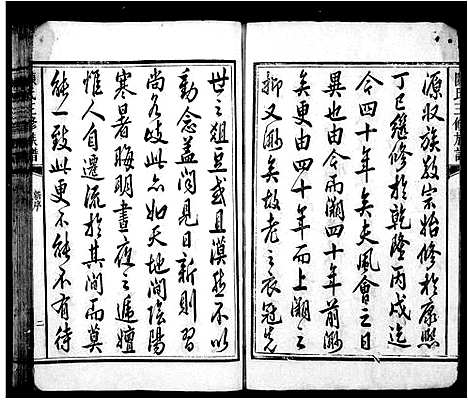 源收族敦宗始修於康熙
丁巳繼修於乾隆丙戌迄
今四十年矣夫風會之日
異也由今而溯四十年前渺
矣更由四十年而上溯之
抑又渺矣故老之衣冠先
世之俎豆或且漠然不以
動念蓋聞見日新則習
尚各岐此亦如天地間陰陽
寒暑晦明晝夜之遞嬗
惟人自遷流於其間而莫
能一致此更不能不有待
陳氏三修族譜
新序
二